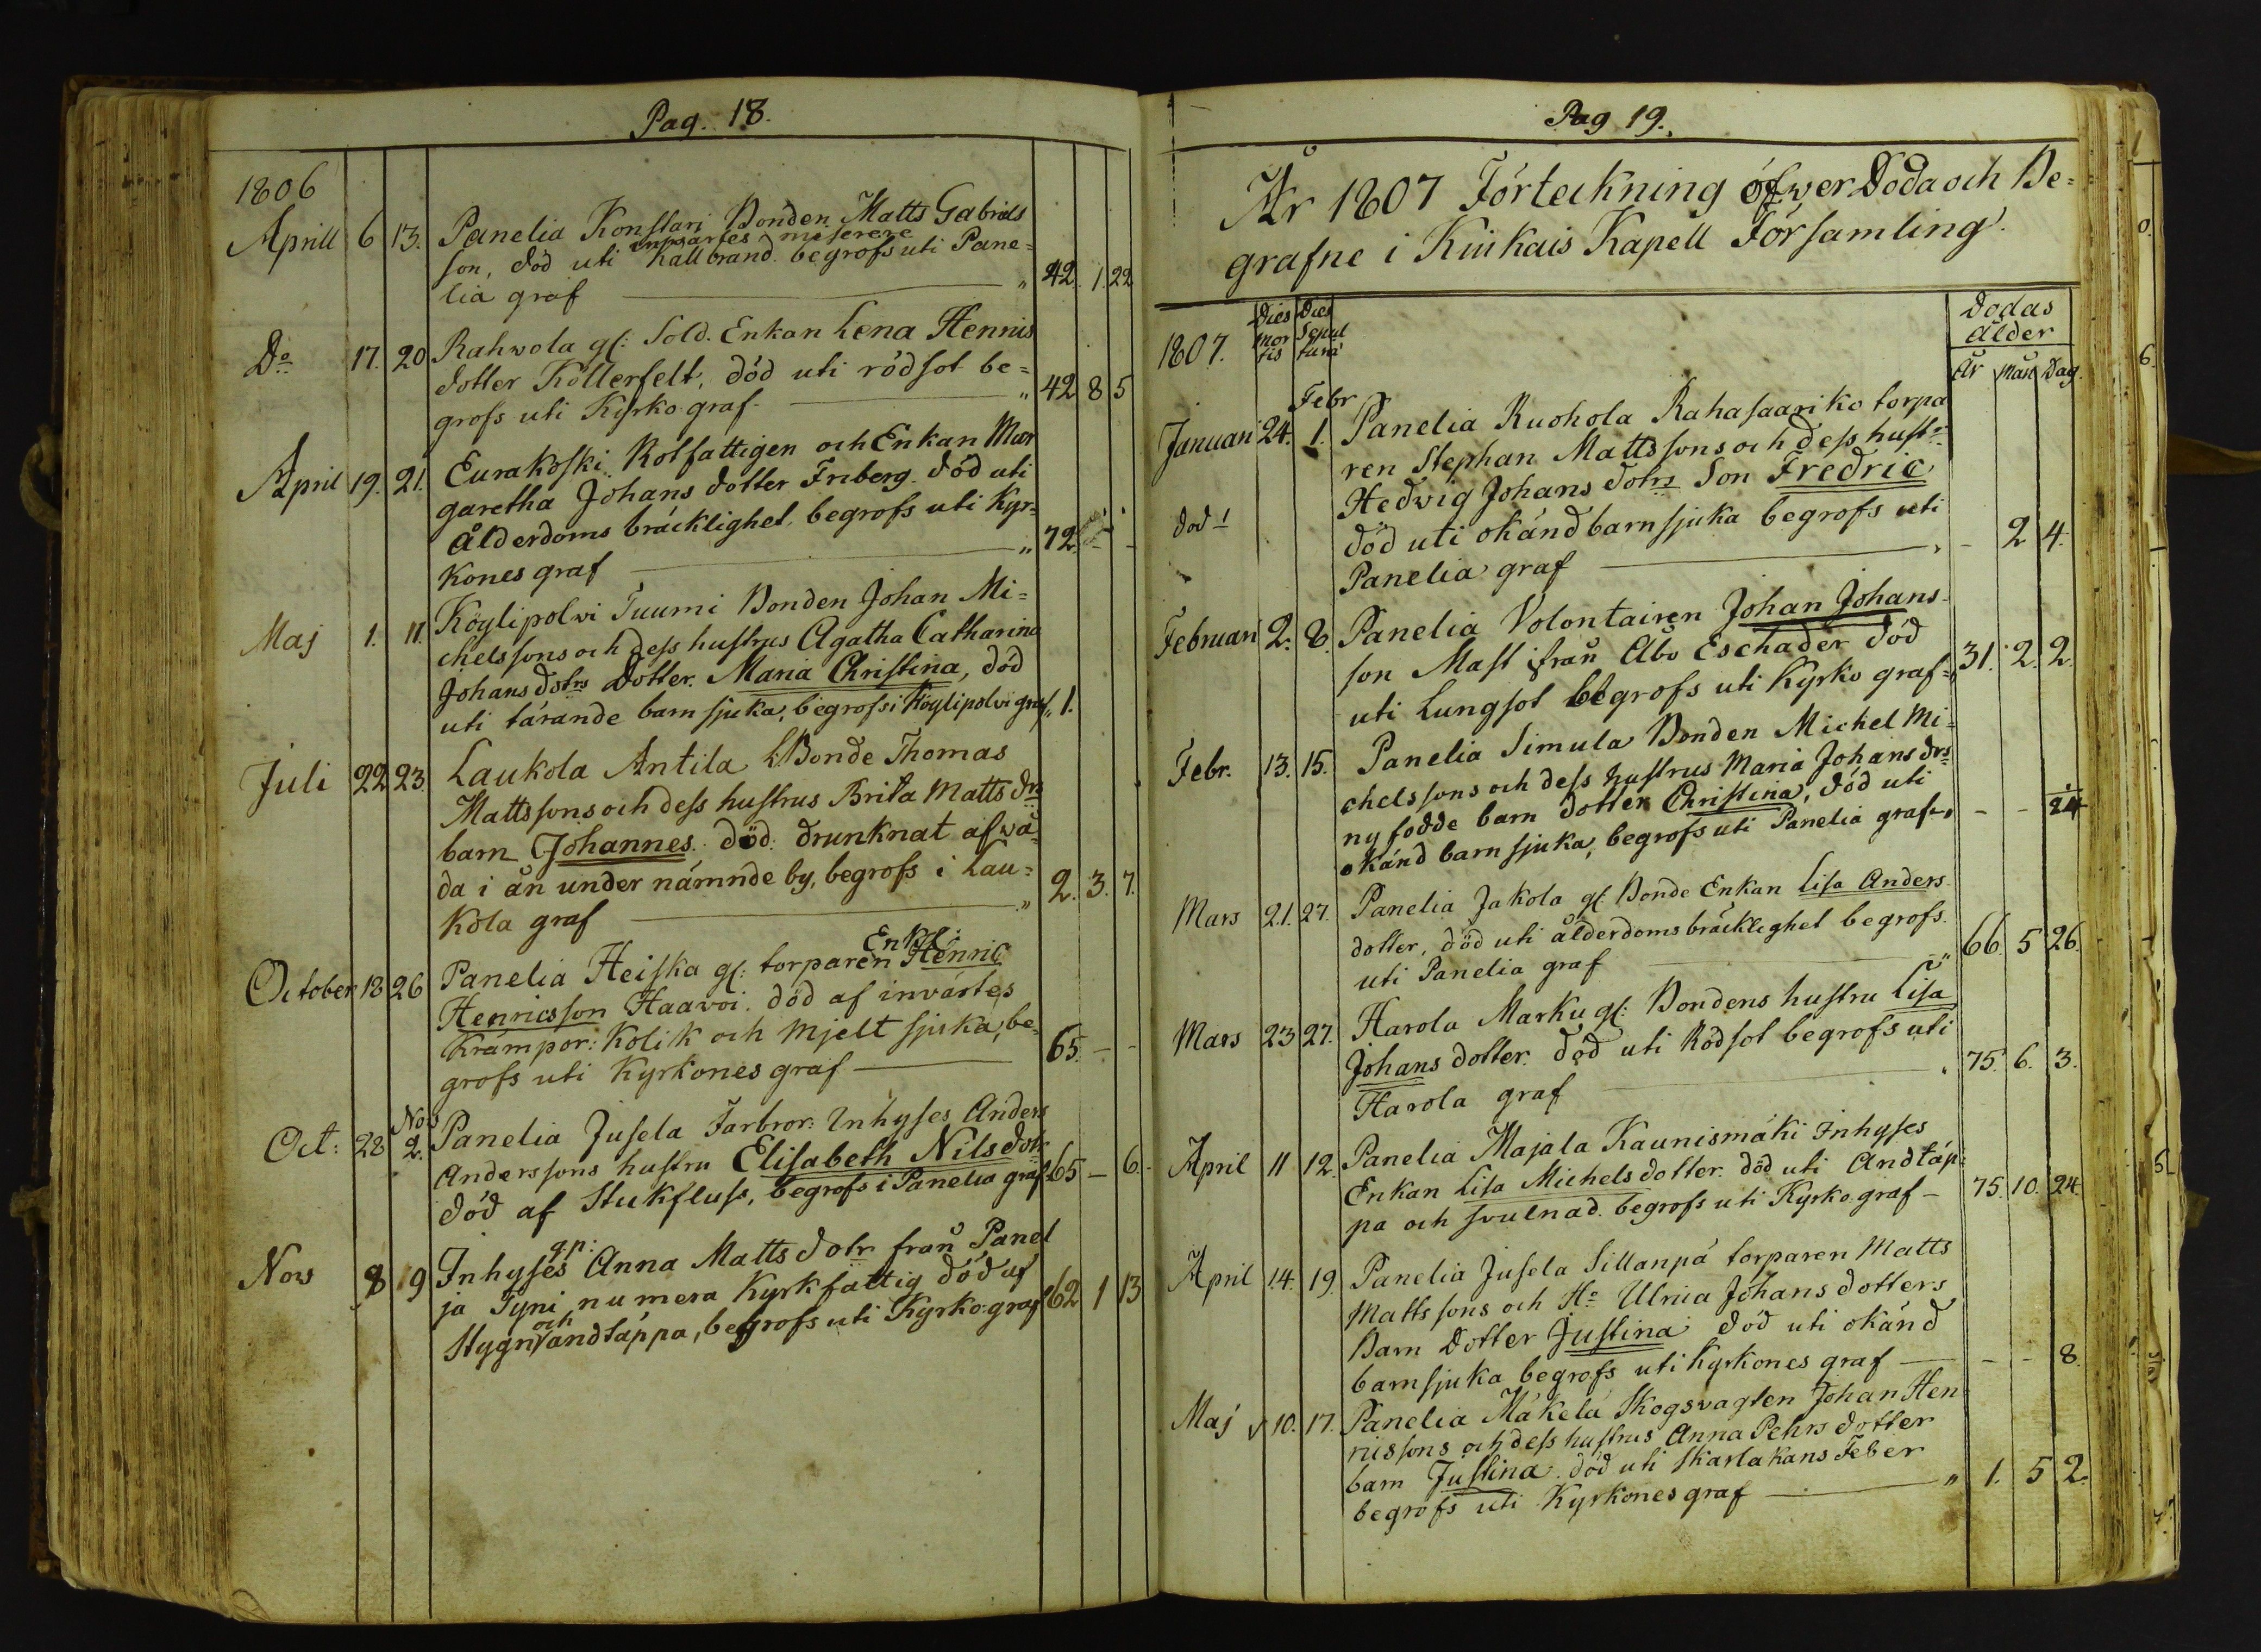 Pag. 18.
1806
Aprill 6 13. Panelia Konstari Bonden Matts Gabriels
invärtes miserere
son, död uti Kallbrand. begrofs uti Pane=
lia graf " 42. 1. 22
Do 17. 20 Rahwola gl: Sold. Enkan Lena Hennis
dotter Kollerfelt, död uti rödsot be=
grofs uti Kyrko graf. " 42 8 5
April 19. 21. Eurakoski Rotfattigen och Enkan Mar
garetha Johans dotter Friberg. död uti
Ålderdoms bräcklighet, begrofs uti Kyr=
kones graf " 72. - -
Maj 1. 11. Köylipolwi Tuumi Bonden Johan Mi=
chelssons och dess hustrus Agatha Catharina
Johansdotrs Dotter. Maria Christina, död
uti tärande barnsjuka, begrofs i Köylipolvi graf " 1.
Juli 22 23. Laukola Antila Bonde Thomas
Mattssons och dess hustrus Brita Matts drs
barn Johannes. död. drunknat af wå
da i ån under nämnde by, begrofs i Lau=
kola graf " 2. 3. 7.
Enkl:
October 18 26 Panelia Heiska gl: torparen Henric
Henricsson Haavoi. död af invärtes
Krämpor: Kolik och Mjelt sjuka, be=
grofs uti Kyrkones graf 65. - -
Nov
Oct: 28 2. Panelia Jusela Farbror: Inhyses Anders
Anderssons hustru Elisabeth Nilsdotr
död af Stukfluss, begrofs i Panelia graf 65 - 6.
q.p:
Nov 8 19 Inhyses Anna Matts dotr från Panel
ja Tyni numera Kyrkfattig död af
och
Stygn andtäppa, begrofs uti Kyrko graf 62 1 13
Pag 19.
År 1807 Förteckning öfwer Döda och Be=
grafne i Kiukais Kapell Församling.
1807. Dies mortis Dies Sepulturæ Dödas ålder
År Mån Dag.
Febr
Januari 24. 1. Panelia Ruohola Rahasaari ko torpa
ren Stephan Mattssons och dess hustr
Hedwig Johans dotrs Son Fredric
död uti okänd barnsjuka begrofs uti
Panelia graf - 2 4.
Februari 2. 8. Panelia Volontairen Johan Johans
son Mast ifrån Åbo Eschader död
uti Lungsot begrofs uti Kyrko graf 31. 2. 2.
Febr. 13. 15. Panelia Simula Bonden Michel Mi=
chelssons och dess hustrus Maria Johans drs
nyfödde barn dotter Christina, död uti
okänd barnsjuka, begrofs uti Panelia graf - - 24
Mars 21. 27. Panelia Jakola gl: Bonde Enkan Lisa Anders
dotter, död uti ålderdomsbräcklighet begrofs
uti Panelia graf " 66. 5 26.
Mars 23 27. Harola Marku gl: Bondens hustru Lisa
Johans dotter. död uti Rödsot begrofs uti
Harola graf 75. 6. 3.
April 11 12. Panelia Majala Kaunismäki Inhyses
Enkan Lisa Michels dotter. död uti Andtäp
pa och svulnad. begrofs uti Kyrko graf - 75. 10. 24.
April 14. 19. Panelia Jusela Sillanpä torparen Matts
Mattssons och Ho Ulrica Johans dotters
Barn Dotter Justina död uti okänd
barnsjuka begrofs uti Kyrkones graf - - 8.
Maj 10. 17. Panelia Mäkelä Skogsvagten Johan Hen
rissons och dess hustrus Anna Pehrs dotter
barn Justina. död uti Skarlakans Feber
begrofs uti Kyrkones graf " 1. 5 2.